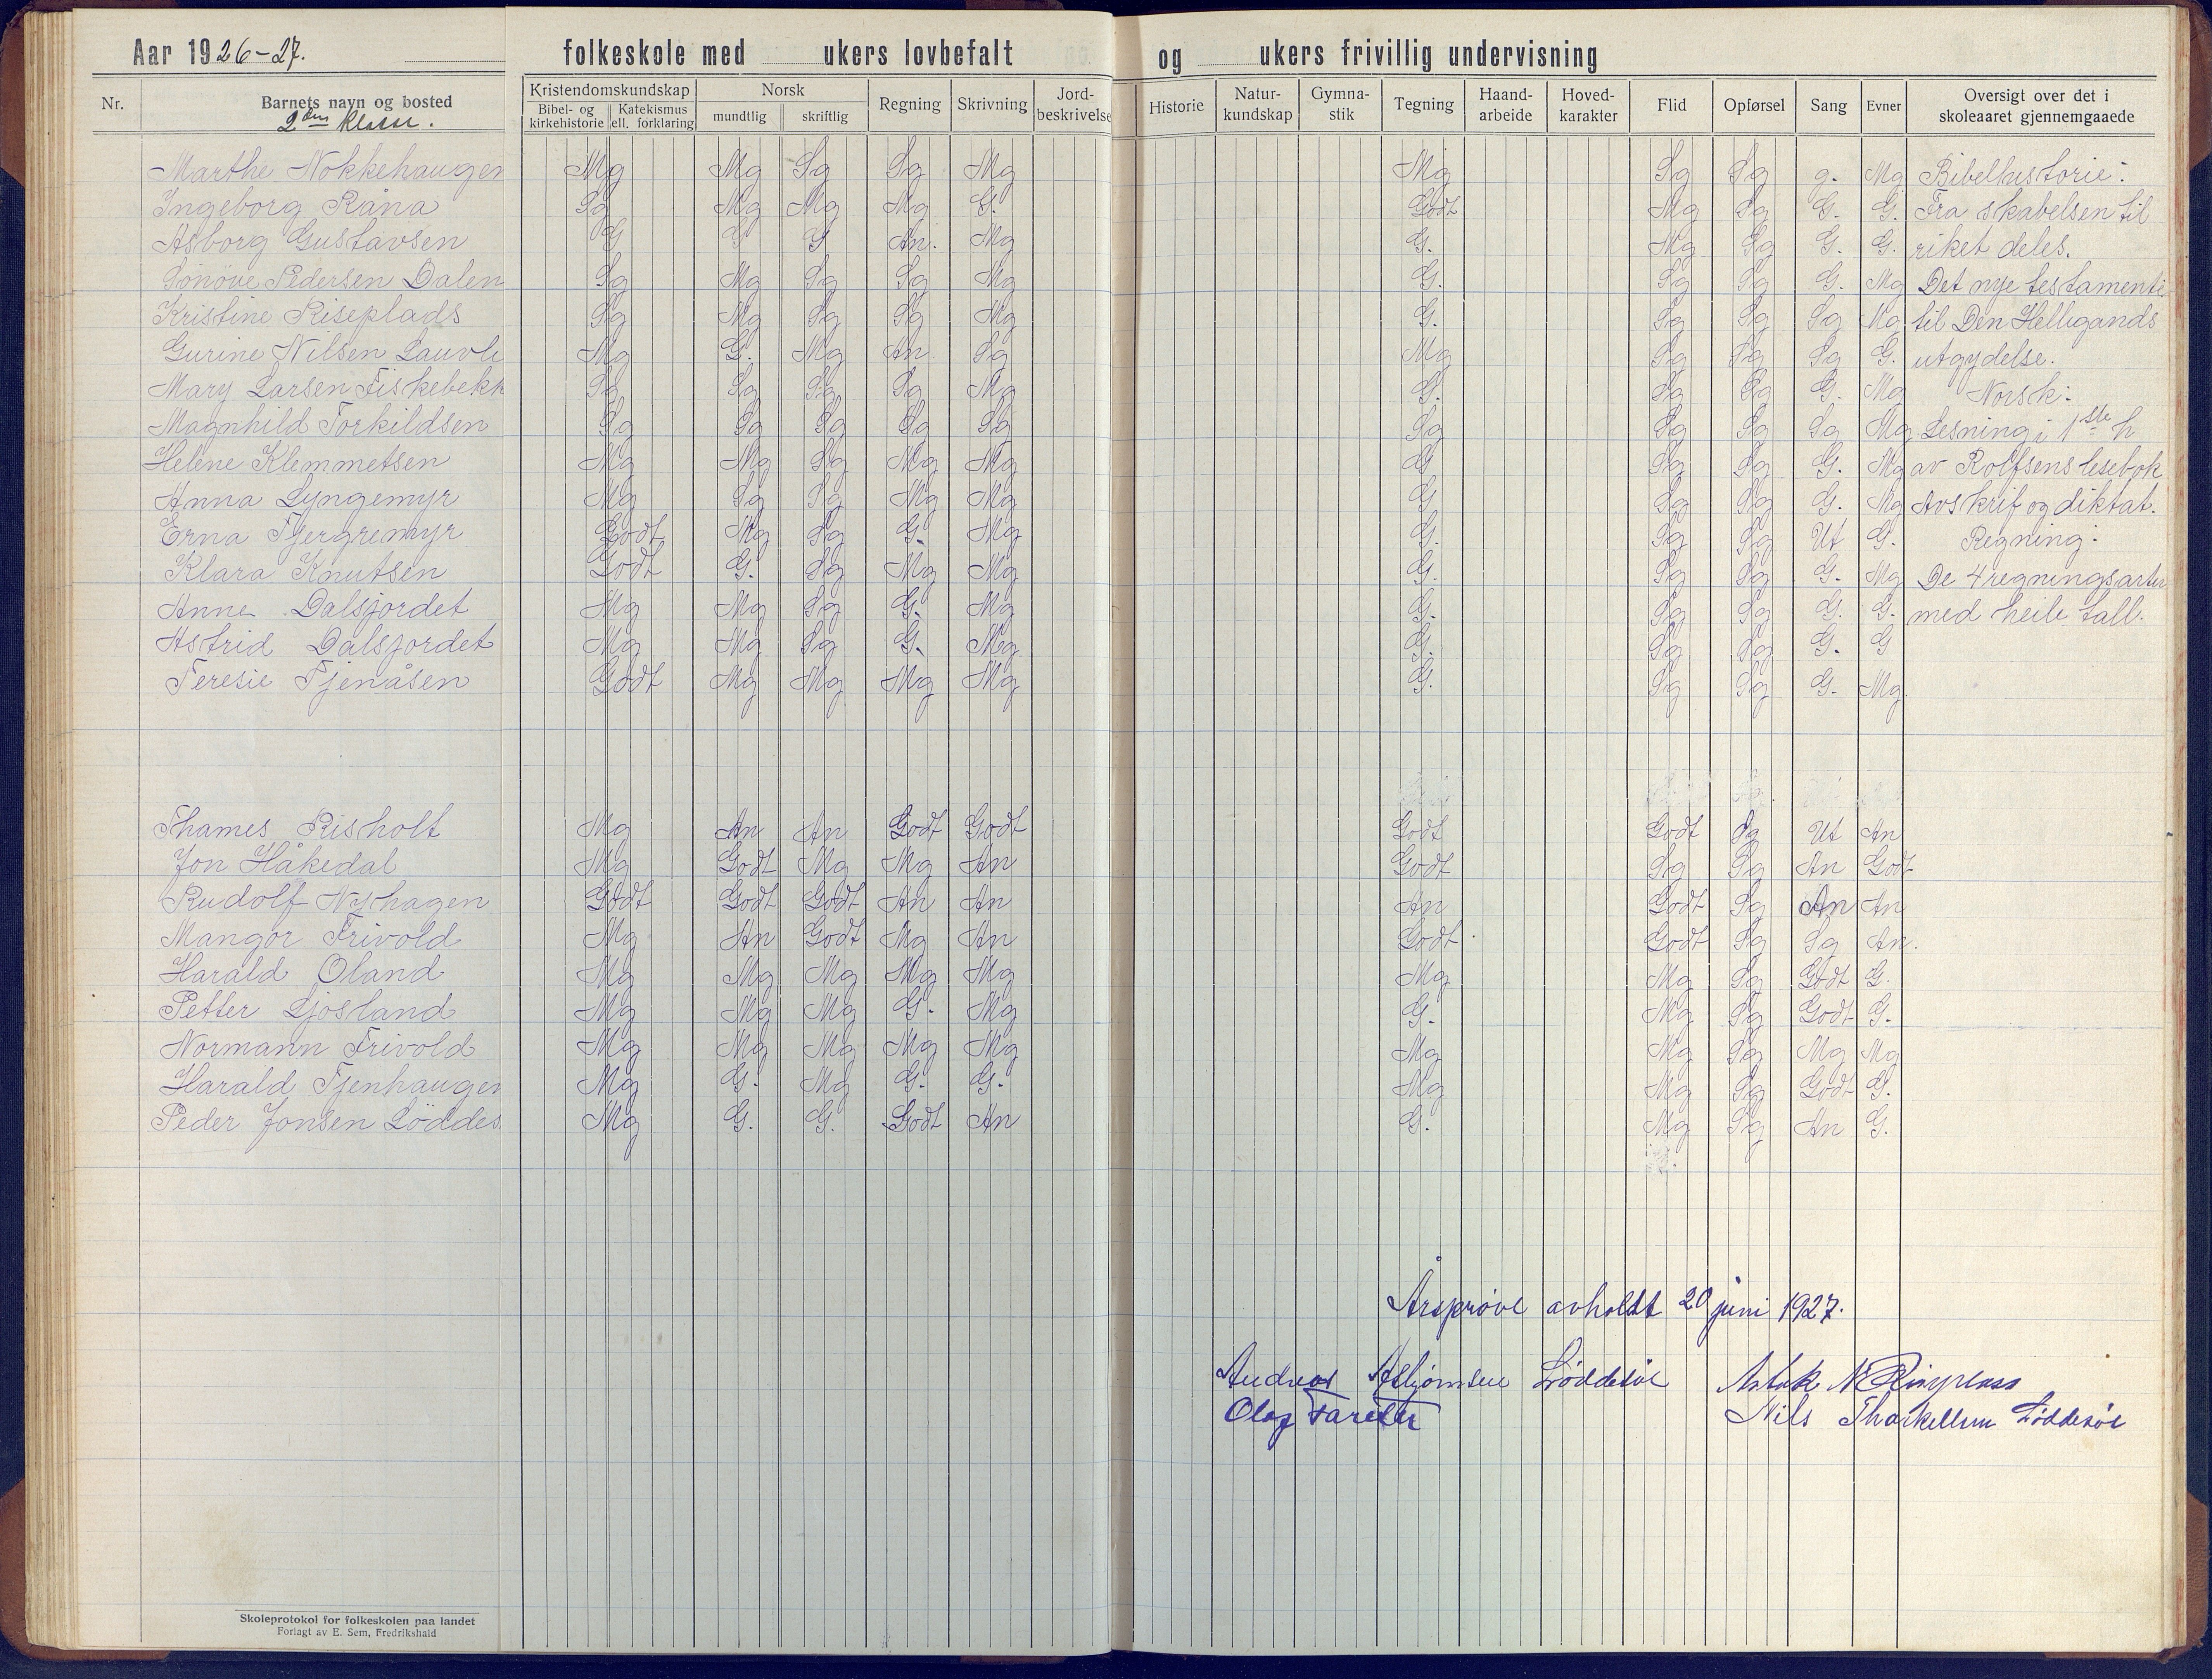 Aar 1926-27. folkeskole med ukers lovbefalt og ukers frivillig undervisning
Nr. Barnets navn og bosted Kristendomskundskap Bibel- og kirkehistorie Katekismus ell. forklaring Norsk mundtlig skriftlig Regning Skrivning Jord-beskrivelse Historie Natur-kundskap Gymna-stik Tegning Haand-arbeide Hoved-karakter Flid Opførsel Sang Evner Oversigt over det i skoleaaret gjennemgaaede
2den klasse.
Marthe Nokkehaugen Mg Mg Sg Sg Mg Mg Sg Sg g. Mg Bibelhistorie:
Ingeborg Råna Sg Mg Mg Mg G. Godt Mg Sg G. G. Fra skabelsen til
Asborg Gustavsen G G G An. Mg G. Mg Sg G. G. riket deles.
Sönöve Pedersen Dalen Sg Mg Sg Sg Mg G. Sg Sg G. Mg Det nye testamente
Kristine Riseplads Sg Mg Sg Sg Mg G. Sg Sg Sg Mg til Den Helligånds
Gurine Nilsen Lauvli Mg G. Mg An Sg Mg Sg Sg Sg G. utgydelse.
Mary Larsen Fiskebekk Sg Sg Sg Sg Mg G. Sg Sg G. Mg Norsk:
Magnhild Torkildsen Sg Sg Sg Sg Sg Sg Sg Sg Sg Mg Lesning i 1ste h
Helene Klemmetsen Mg Mg Sg Mg Mg G Sg Sg G. Mg av Rolfsens lesebok
Anna Lyngemyr Mg Sg Sg Mg Mg G Sg Sg G. Mg Avskrif og diktat.
Erna Tjergremyr Godt Mg Sg G. Mg G. Sg Sg Ut G. Regning:
Klara Knutsen Godt G. Sg Mg Mg G. Sg Sg G. Mg De 4 regningsarter
Anne Dalsjordet Mg Mg Sg G. Mg G. Sg Sg G. G. med heile tall.
Astrid Dalsjordet Mg Mg Sg G. Mg G. Sg Sg G. G
Teresie Tjenåsen Godt Mg Mg Mg Mg G. Sg Sg G. Mg.
Thames Risholt Mg An An Godt Godt Godt Godt Sg Ut An
Jon Håkedal Mg Godt Mg Mg An Godt Sg Sg An Godt
Rudolf Nyhagen Godt Godt Godt An An An Godt Sg An An
Mangor Frivold Mg An Godt Mg An Godt Godt Sg Sg An.
Harald Oland Mg Mg Mg Mg Mg Mg Mg Sg Godt G.
Petter Ljosland Mg Mg Mg G. Mg G. Mg Sg Godt G.
Normann Frivold Mg Mg Mg Mg Mg Mg Mg Sg Mg Mg
Harald Tjenhaugen Mg G. Mg G. G. Mg Mg Sg Godt G.
Peder Jonsen Löddes. Mg G. G. Godt An G. Mg Sg An G.
Årsprøve avholdt 20 juni 1927.
Andreas Asbjörnsen Løddesøl
Olaf Nils Løddesøl
Skoleprotokol for folkeskolen paa landet
Forlagt av E. Sem, Fredrikshald